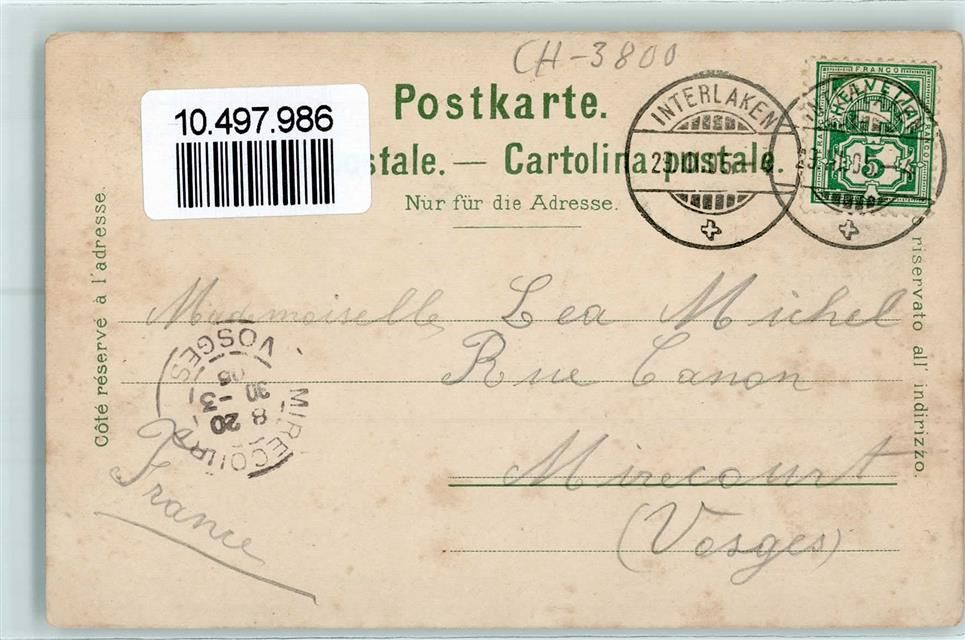 CH-3800
10.497.986
Postkarte.
postale. — Cartolina postale.
Nur für die Adresse.
INTERLAKEN
FRANCO
HELVETIA
5
Côté réservé à l'adresse.
riservato all' indirizzo.
Mademoiselle Lea Michel
Rue Canon
Mirecourt
(Vosges)
France
MIRECOURT
VOSGES
8 20
30 -3
05